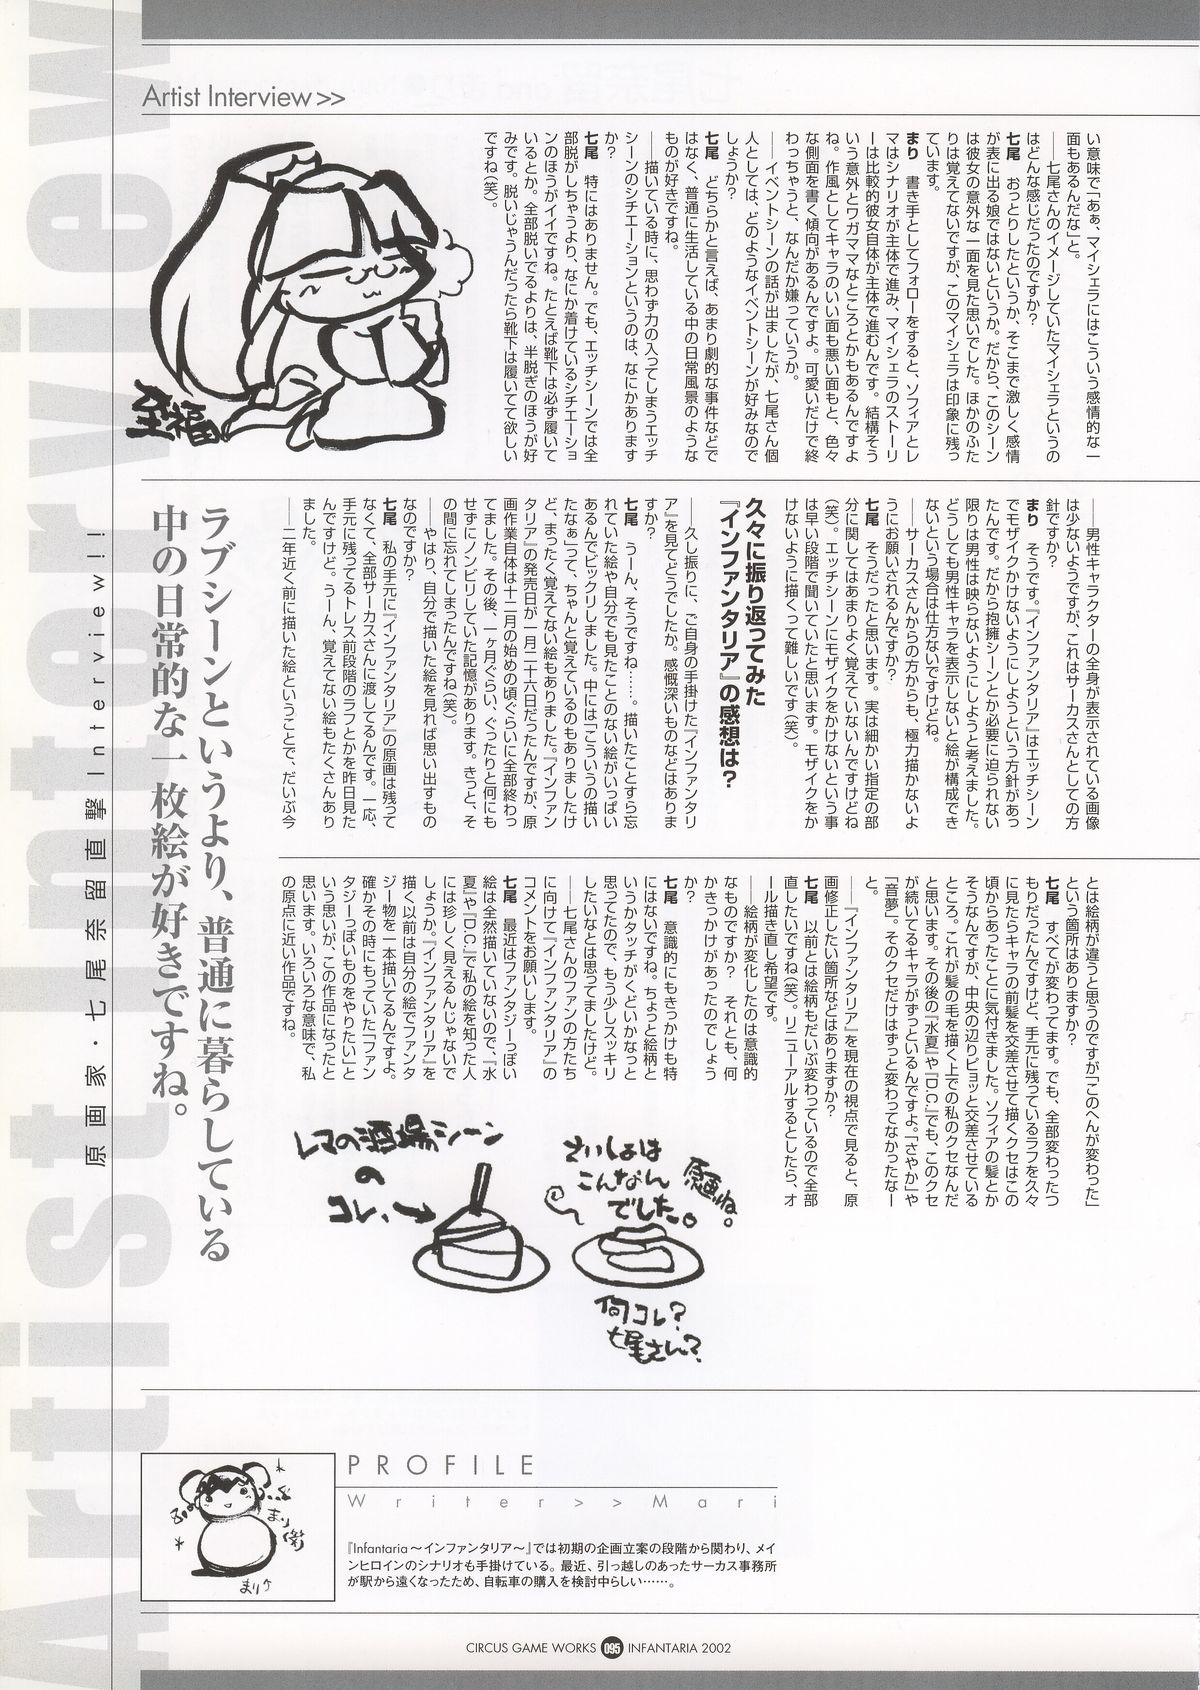 Artist Interview>>
い意味で「あぁ、マイシェラにはこういう感情的な一
面もあるんだな」と。
──七尾さんのイメージしていたマイシェラというの
はどんな感じだったのですか？
七尾　おっとりしたというか、そこまで激しく感情
が表に出る娘ではないというか。だから、このシーン
は彼女の意外な一面を見た思いでした。ほかのふた
りは覚えてないですが、このマイシェラは印象に残っ
ています。
まり　書き手としてフォローをすると、ソフィアとレ
マはシナリオが主体で進み、マイシェラのストーリ
ーは比較的彼女自体が主体で進むんです。結構そう
いう意外とワガママなところとかもあるんですよ
ね。作風としてキャラのいい面も悪い面もと、色々
な側面を書く傾向があるんですよ。可愛いだけで終
わっちゃうと、なんだか嫌っていうか。
──イベントシーンの話が出ましたが、七尾さん個
人としては、どのようなイベントシーンが好みなので
しょうか？
七尾　どちらかと言えば、あまり劇的な事件などで
はなく、普通に生活している中の日常風景のような
ものが好きですね。
──描いている時に、思わず力の入ってしまうエッチ
シーンのシチエーションというのは、なにかあります
か？
七尾　特にはありません。でも、エッチシーンでは全
部脱がしちゃうより、なにか着けているシチエーショ
ンのほうがイイですね。たとえば靴下は必ず履いて
いるとか。全部脱いでるよりは、半脱ぎのほうが好
みです。脱いじゃうんだったら靴下は履いてて欲しい
ですね（笑）。
至福
──男性キャラクターの全身が表示されている画像
は少ないようですが、これはサーカスさんとしての方
針ですか？
まり　そうです。『インファンタリア』はエッチシーン
でモザイクかけないようにしようという方針があっ
たんです。だから抱擁シーンとか必要に迫られない
限りは男性は映らないようにしようと考えました。
どうしても男性キャラを表示しないと絵が構成でき
ないという場合は仕方ないですけどね。
──サーカスさんからの方からも、極力描かないよ
うにお願いされるんですか？
七尾　そうだったと思います。実は細かい指定の部
分に関してはあまりよく覚えていないんですけどね
（笑）。エッチシーンにモザイクをかけないという事
は早い段階で聞いていたと思います。モザイクをか
けないように描くって難しいです（笑）。
久々に振り返ってみた
『インファンタリア』の感想は？
──久し振りに、ご自身の手掛けた『インファンタリ
ア』を見てどうでしたか。感慨深いものなどはありま
すか？
七尾　うーん、そうですね……。描いたことすら忘
れていた絵や自分でも見たことのない絵がいっぱい
あるんでビックリしました。中には「こういうの描い
たなぁ」って、ちゃんと覚えているのもありましたけ
ど、まったく覚えてない絵もありました。『インファン
タリア』の発売日が一月二十六日だったんですが、原
画作業自体は十二月の始めの頃ぐらいに全部終わっ
てました。その後、一ヶ月ぐらい、ぐったりと何にも
せずにノンビリしていた記憶があります。きっと、そ
の間に忘れてしまったんですね（笑）。
──やはり、自分で描いた絵を見れば思い出すもの
なのですか？
七尾　私の手元に『インファンタリア』の原画は残って
なくて、全部サーカスさんに渡してるんです。一応、
手元に残ってるトレス前段階のラフとかを昨日見た
んですけど。うーん、覚えてない絵もたくさんあり
ました。
──二年近く前に描いた絵ということで、だいぶ今
とは絵柄が違うと思うのですが「このへんが変わった」
という箇所はありますか？
七尾　すべてが変わってます。でも、全部変わったつ
もりだったんですけど、手元に残っているラフを久々
に見たらキャラの前髪を交差させて描くクセはこの
頃からあったことに気付きました。ソフィアの髪とか
そうなんですが、中央の辺りピョッと交差させている
ところ。これが髪の毛を描く上での私のクセなんだ
と思います。その後の『水夏』や『D.C.』でも、このクセ
が続いてるキャラがずっといるんですよ。「さやか」や
「音夢」。そのクセだけはずっと変わってなかったなー
と。
──『インファンタリア』を現在の視点で見ると、原
画修正したい箇所などはありますか？
七尾　以前とは絵柄もだいぶ変わっているので全部
直したいですね（笑）。リニューアルするとしたら、オ
ール描き直し希望です。
──絵柄が変化したのは意識的
なものですか？　それとも、何
かきっかけがあったのでしょう
か？
七尾　意識的にもきっかけも特
にはないですね。ちょっと絵柄と
いうかタッチがくどいかなっと
思ってたので、もう少しスッキリ
したいなとは思ってましたけど。
──七尾さんのファンの方たち
に向けて『インファンタリア』の
コメントをお願いします。
七尾　最近はファンタジーっぽい
絵は全然描いていないので、『水
夏』や『D.C.』で私の絵を知った人
には珍しく見えるんじゃないで
しょうか。『インファンタリア』を
描く以前は自分の絵でファンタ
ジー物を一本描いてるんですよ。
確かその時にもっていた「ファン
タジーっぽいものをやりたい」と
いう思いが、この作品になったと
思います。いろいろな意味で、私
の原点に近い作品ですね。
さいしょは
こんなん
でした。
原画ね。
何コレ？
七尾さん？
レマの酒場シーン
の
コレ、→
ラブシーンというより、普通に暮らしている
中の日常的な一枚絵が好きですね。
原画家・七尾奈留直撃Interview!!
Artist Interview
PROFILE
Writer>>Mari
『Infantaria～インファンタリア～』では初期の企画立案の段階から関わり、メイ
ンヒロインのシナリオも手掛けている。最近、引っ越しのあったサーカス事務所
が駅から遠くなったため、自転車の購入を検討中らしい……。
CIRCUS GAME WORKS 095 INFANTARIA 2002